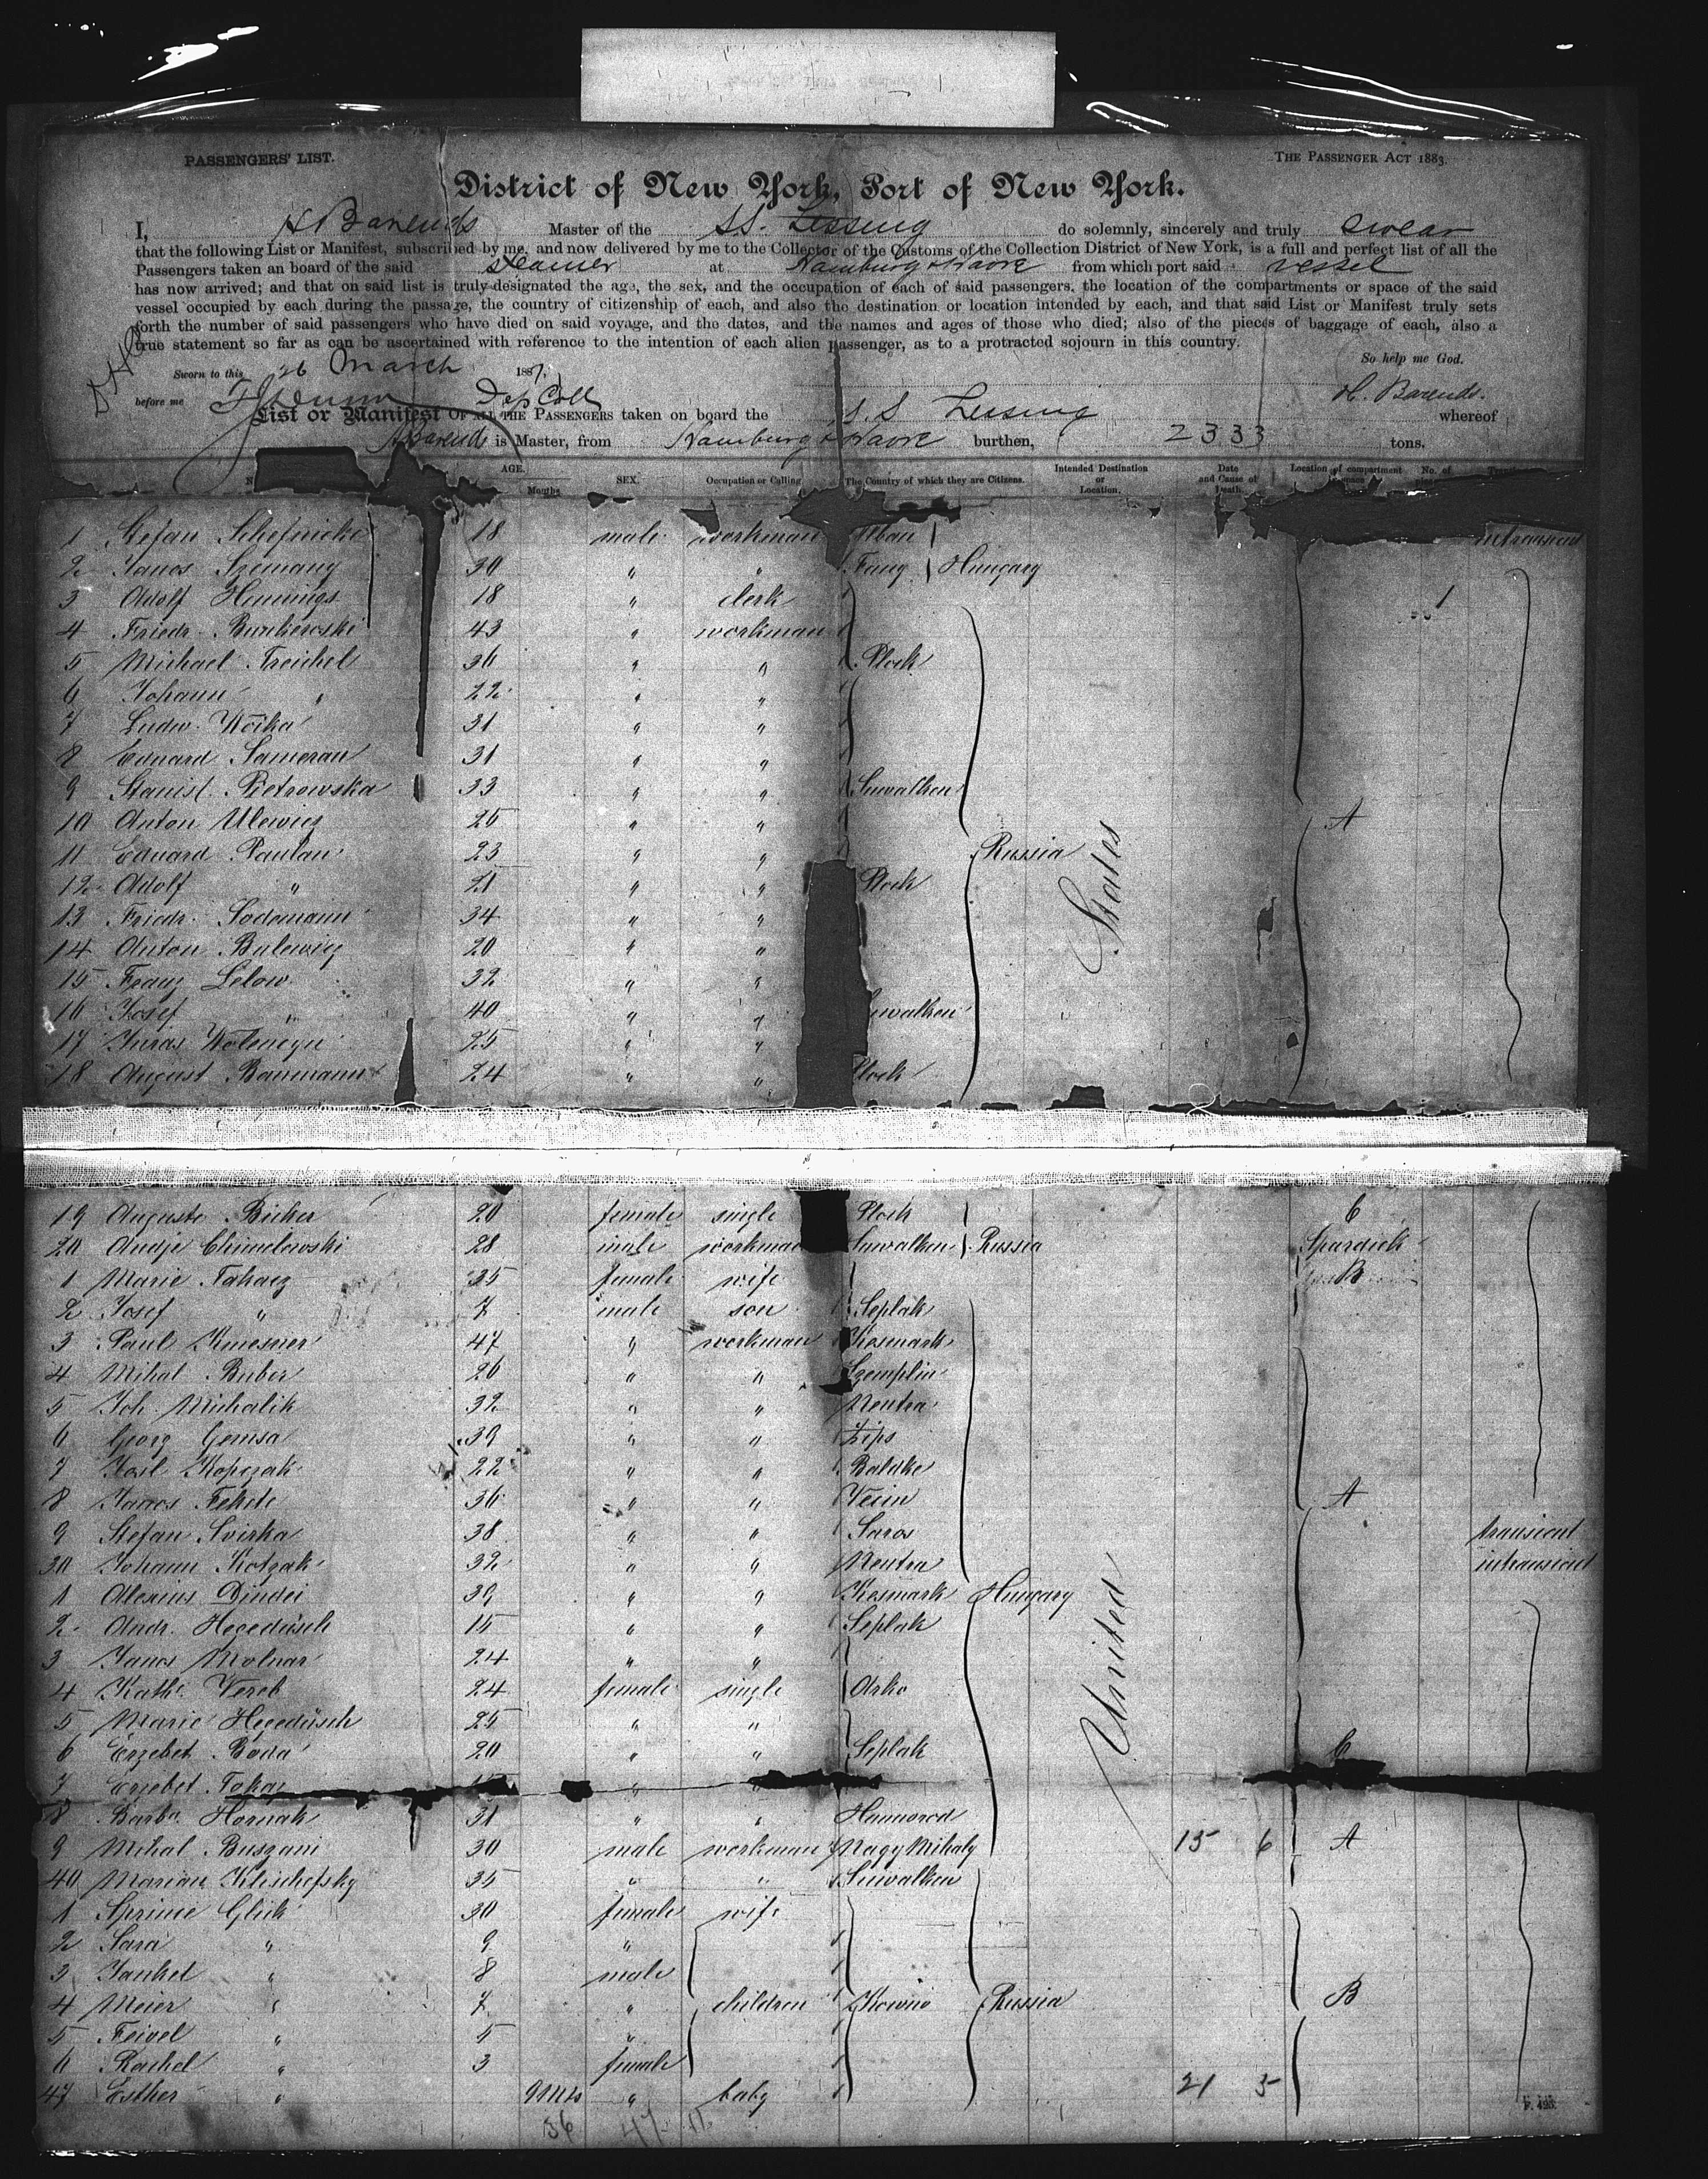 PASSENGERS' LIST.
THE PASSENGER ACT 1883.
District of New York, Port of New York.
I, H Barends Master of the SS. Lessing do solemnly, sincerely and truly swear
that the following List or Manifest, subscribed by me, and now delivered by me to the Collector of the Customs of the Collection District of New York, is a full and perfect list of all the
Passengers taken an board of the said steamer at Hamburg & Havre from which port said vessel
has now arrived; and that on said list is truly designated the age, the sex, and the occupation of each of said passengers, the location of the compartments or space of the said
vessel occupied by each during the passage, the country of citizenship of each, and also the destination or location intended by each, and that said List or Manifest truly sets
forth the number of said passengers who have died on said voyage, and the dates, and the names and ages of those who died; also of the pieces of baggage of each, also a
true statement so far as can be ascertained with reference to the intention of each alien passenger, as to a protracted sojourn in this country.
So help me God.
Sworn to this 26 March 1887,
before me Dep Coll H. Barends.
List or Manifest OF ALL THE PASSENGERS taken on board the S.S Lessing whereof
H Barends is Master, from Hamburg & Havre burthen, 2333 tons.
AGE. Months SEX. Occupation or Calling The Country of which they are Citizens. Intended Destination or Location. Date and Cause of Death. Location of compartment No. of
1 Stefan 18 male workman intransient
2 Janos Szemany 30 " " Hungary
3 Adolf Hennings 18 " clerk 1
4 Friedr. 43 " workman
5 Michael Treichel 36 " " Plock
6 Johann " 22 " "
7 Ludw. Woika 31 " "
8 Eduard Sameran 31 " "
9 Stanisl. Pietrowska 33 " " Suwalken
10 Anton Ulewicz 25 " " A
11 Eduard Paulau 23 " " Russia States
12 Adolf " 21 " " Plock
13 Friedr. Sodomann 34 " "
14 Anton Bulewicz 20 " "
15 Franz Lelow 32 " "
16 Josef " 40 " " uwalken
17 Juras 25 " "
18 August Baumann 24 " " Plock
19 Auguste Bicker 20 female single Plock C
20 Andje Chimelowski 28 male workman Suwalken Russia Spardeck
1 Marie Takacz 35 female wife B
2 Josef " 7 male son Seplak
3 Paul Kmesner 47 " workman Kesmark
4 Mihal Buber 26 " " Szemplin
5 Joh. Michalik 32 " " Neutra
6 Georg Gemsa 39 " " Zips
7 Josl Kopczak 22 " " Baldke
8 Janos Fekete 36 " " A
9 Stefan Svirka 38 " " Saros transient
30 Johann Kotzak 32 " " Neutra intransient
1 Alexius Dindei 39 " " Kesmark Hungary United
2 Andr. Hegedüsch 15 " " Seplak
3 Janos Molnar 24 " "
4 Kath. Vereb 24 female single Arko
5 Marie Hegedüsch 25 " "
6 Erzebet Boda 20 " " Seplak C
7 Erzebet Takaz " "
8 Barba. Hornak 31 " " Hannorod
9 Mihal Buszani 30 male workman Nagy Mihaly 15 6 A
40 Marian Klischefsky 35 " " Suwalken
1 Sprinze Glick 30 female wife
2 Sara " 9 "
3 Jankel " 8 male
4 Meier " 7 " children Kowno Russia B
5 Feivel " 5 "
6 Rachel " 3 female
47 Esther " 9 Mts " baby 21 5
36 47 11.
F. 495.